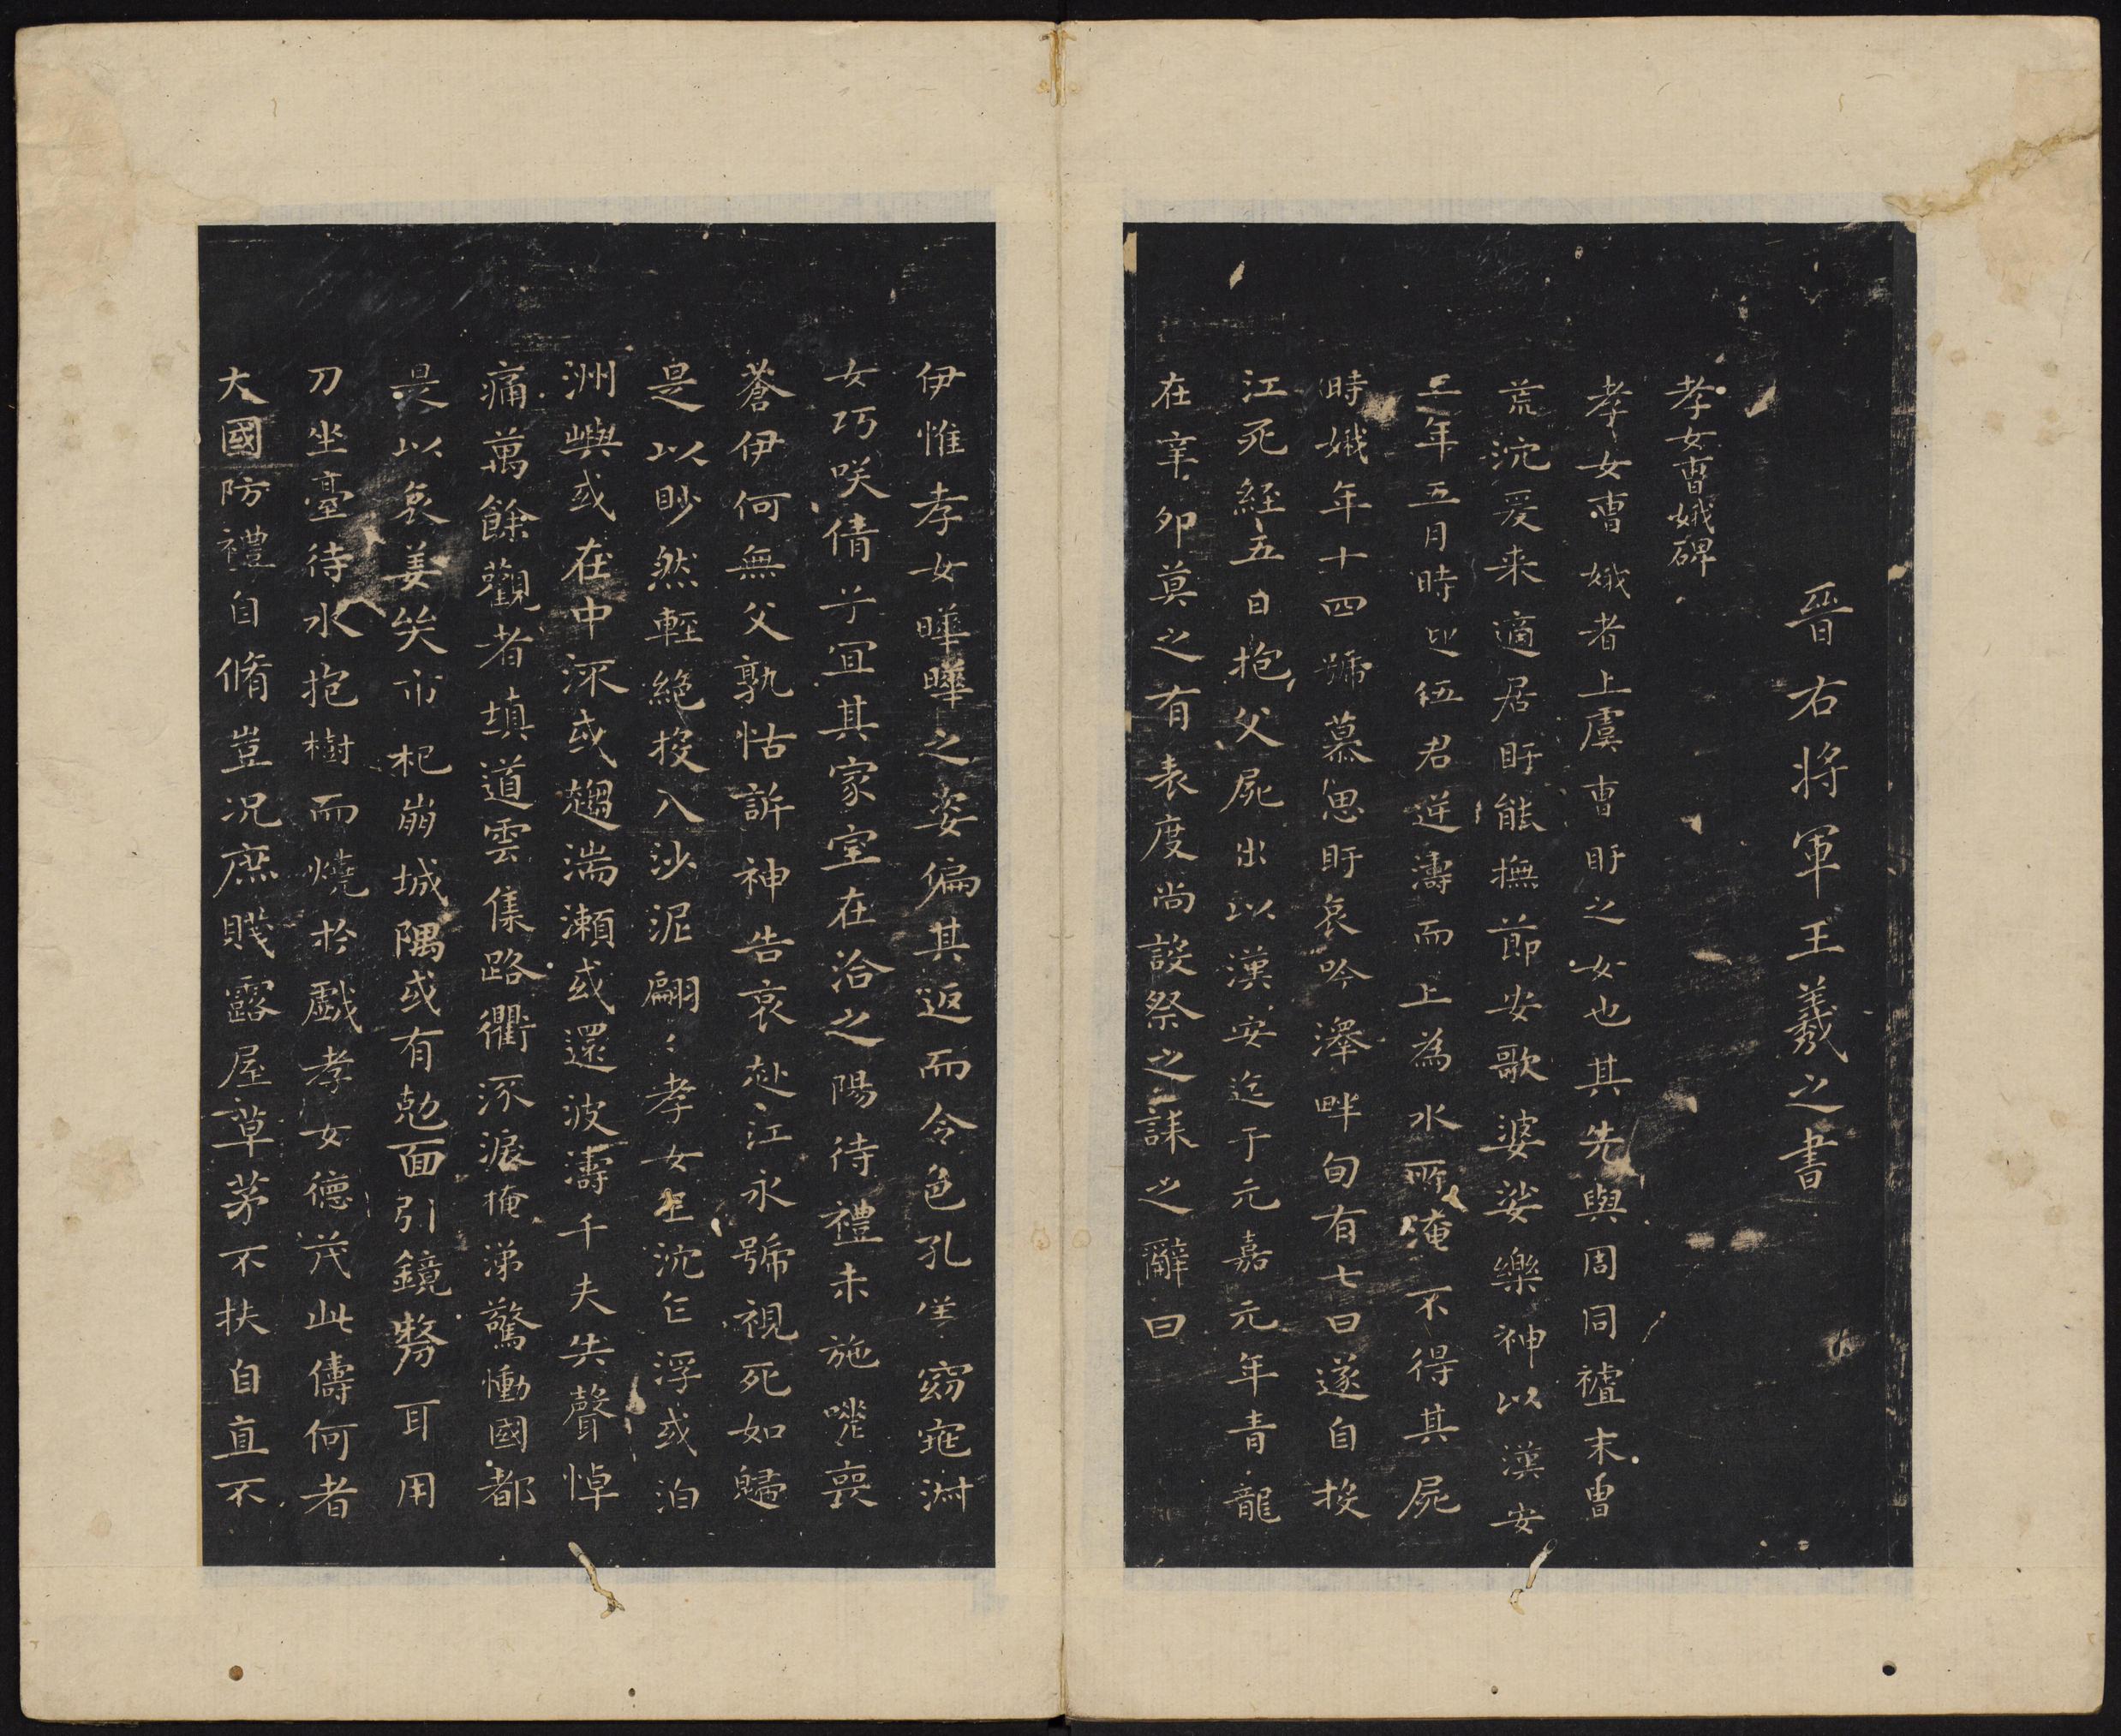 晉右將軍王羲之書
孝女曹娥碑
孝女曹娥者上虞曹盱之女也其先與周同祖末曹
荒沈爰来適居盱能撫節安歌婆娑樂神以漢安
二年五月時迎伍君逆濤而上為水所淹不得其屍
時娥年十四號慕思盱哀吟澤畔旬有七日遂自投
江死経五日抱父屍出以漢安迄于元嘉元年青龍
在辛卯莫之有表度尚設祭之誄之辭曰
伊惟孝女曄曄之姿偏其返而令色孔儀窈窕淑
女巧咲倩兮宜其家室在洽之陽待禮未施嗟喪
蒼伊何無父孰怙訴神告哀赴江永號視死如歸
是以眇然輕絶投入沙泥翩〻孝女乍沈乍浮或泊
洲嶼或在中流或趨湍瀬或還波濤千夫失聲悼
痛萬餘觀者填道雲集路衢流淚掩涕驚慟國都
是以哀姜哭市杞崩城隅或有尅面引鏡剺耳用
刀坐臺待水抱樹而燒於戲孝女德茂此儔何者
大國防禮自脩豈况庶賤露屋草茅不扶自直不